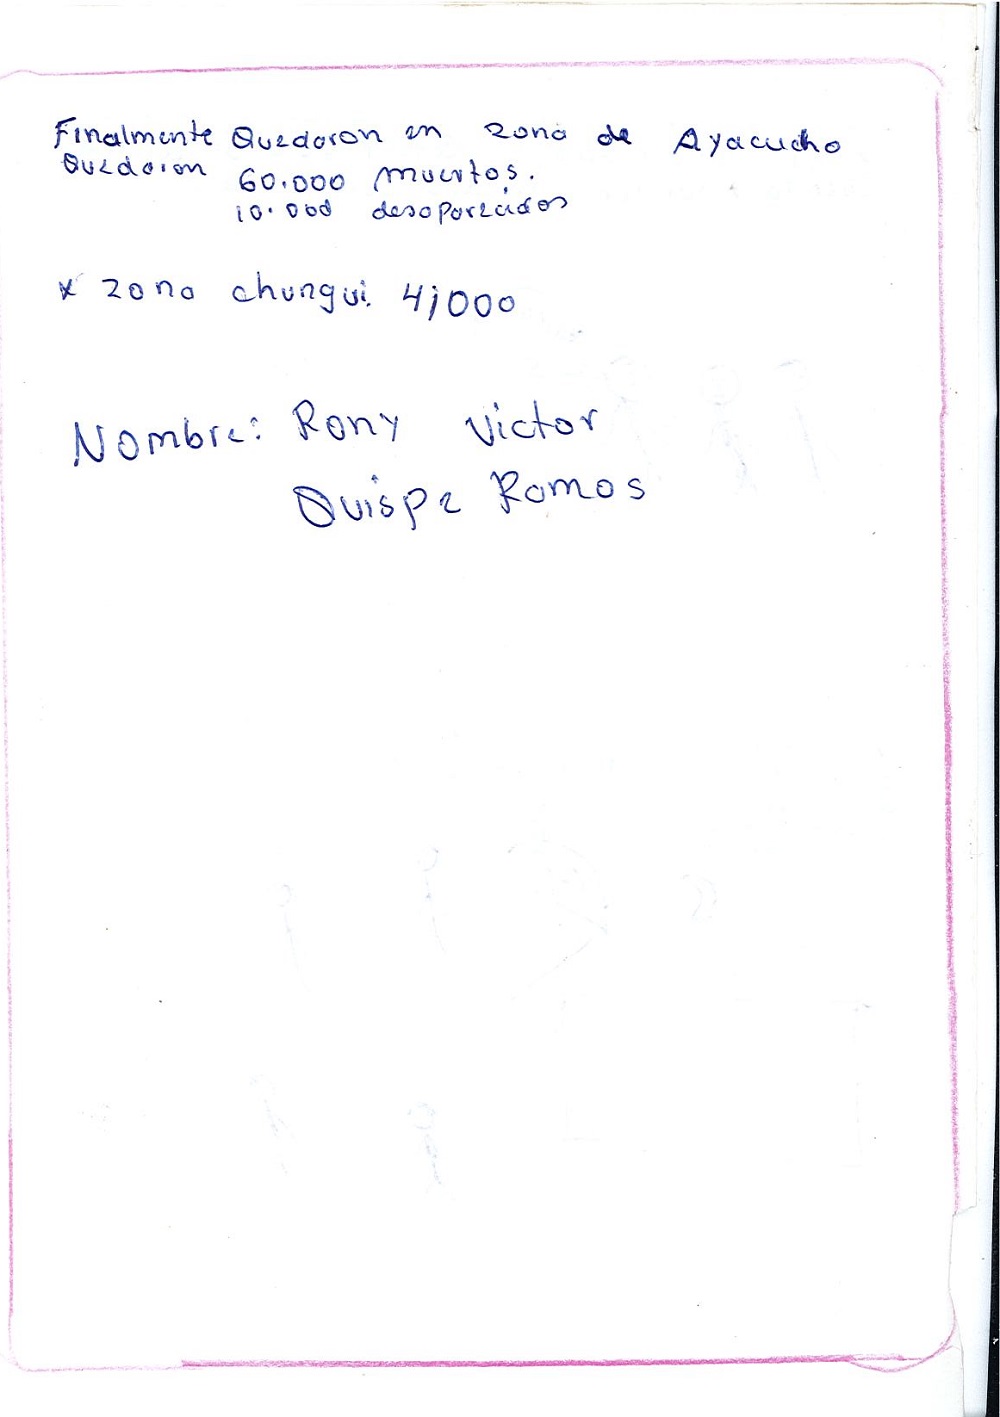 Finalmente Quedaron en zona de Ayacucho
Quedaron 60.000 muertos.
10.000 desaparecidos
* zona chungui. 4;000
Nombre: Rony Victor
Quispe Ramos